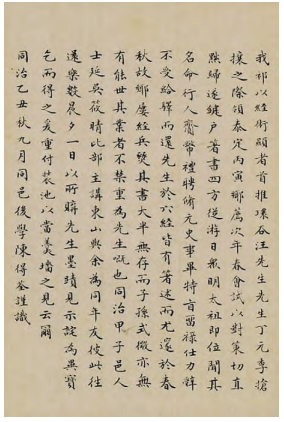 我祁以經術顯者首推環谷汪先生先生丁元季搶
攘之際領泰定丙寅鄉薦次年春會試以對策切直
黜歸遂鍵戶著書四方從游日眾明太祖即位聞其
名命行人齎幣禮聘脩元史事畢特旨留祿仕力辭
不受給驛而還先生於六經皆有著述而尤邃於春
秋故鄉屢經兵燹其書大半無存而子孫式微亦無
有能世其業者不禁重為先生嘅也同治甲子邑人
士延吳筱晴比部主講東山與余為同年友彼此往
還樂數晨夕一日以所購先生墨蹟見示詫為異寶
乞而得之爰重付裝池以當羹墻之見云爾
同治乙丑秋九月同邑後學陳得荃謹識